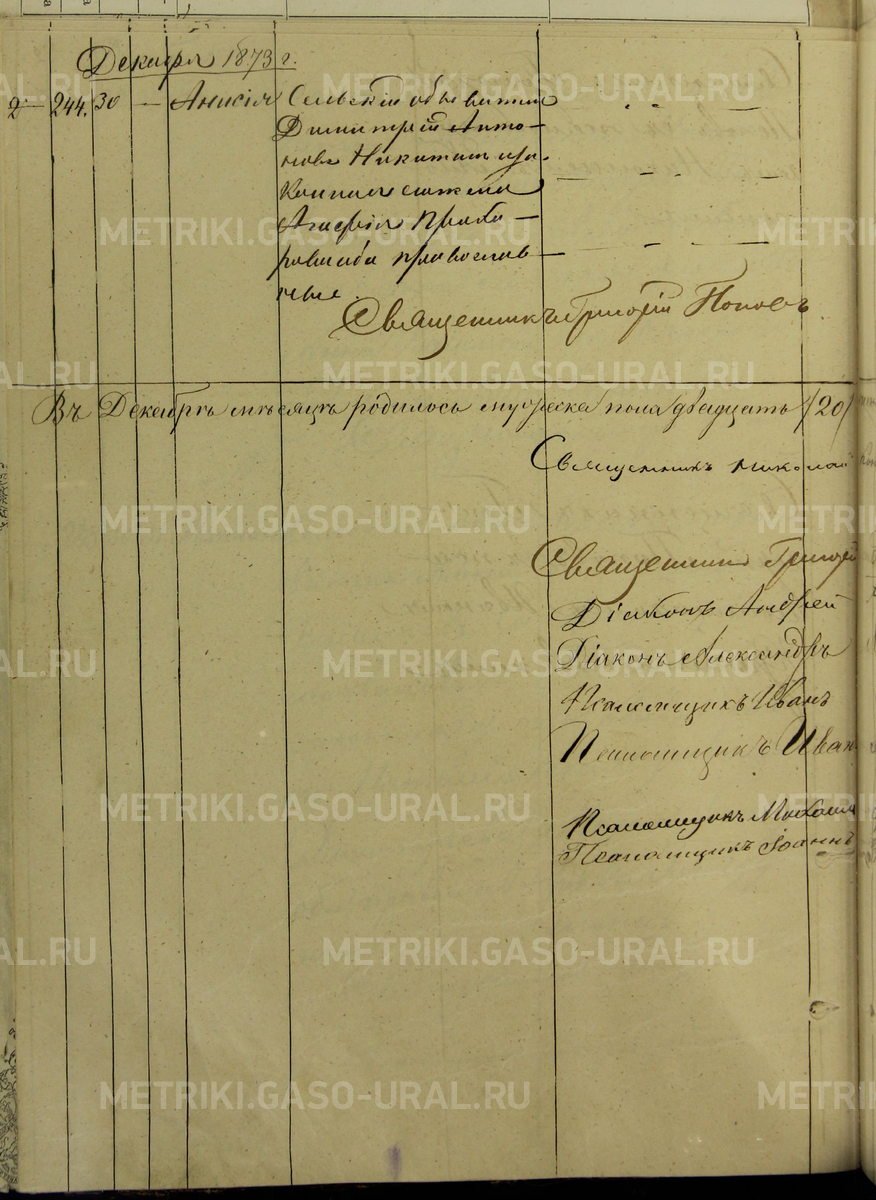 Декабрь 1873 г.
2 — 244. 30 — Анисія Сельскій обыватель
Димитрій Анто-
новъ Никитинъ иза-
конная его жена
Агафія Проко-
православ-
ные.
Священникъ Григорій Поповъ
Въ Декабрѣ мѣсяцѣ родилось мужеска пола двадцать /20/
Священникъ Николай
Священникъ Григорій
Діаконъ Андрей
Діаконъ Александръ
Псаломщикъ Иванъ
Псаломщикъ Иван
Псаломщикъ Михаил
Псаломщикъ Іоаннъ
METRIKI.GASO-URAL.RU